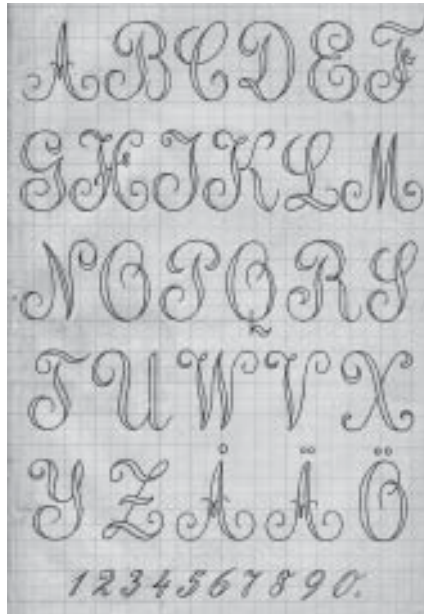 A B C D E F
G H I K L M
N O P Q R S
T U W V X
Y Z Å Ä Ö
1 2 3 4 5 6 7 8 9 0.